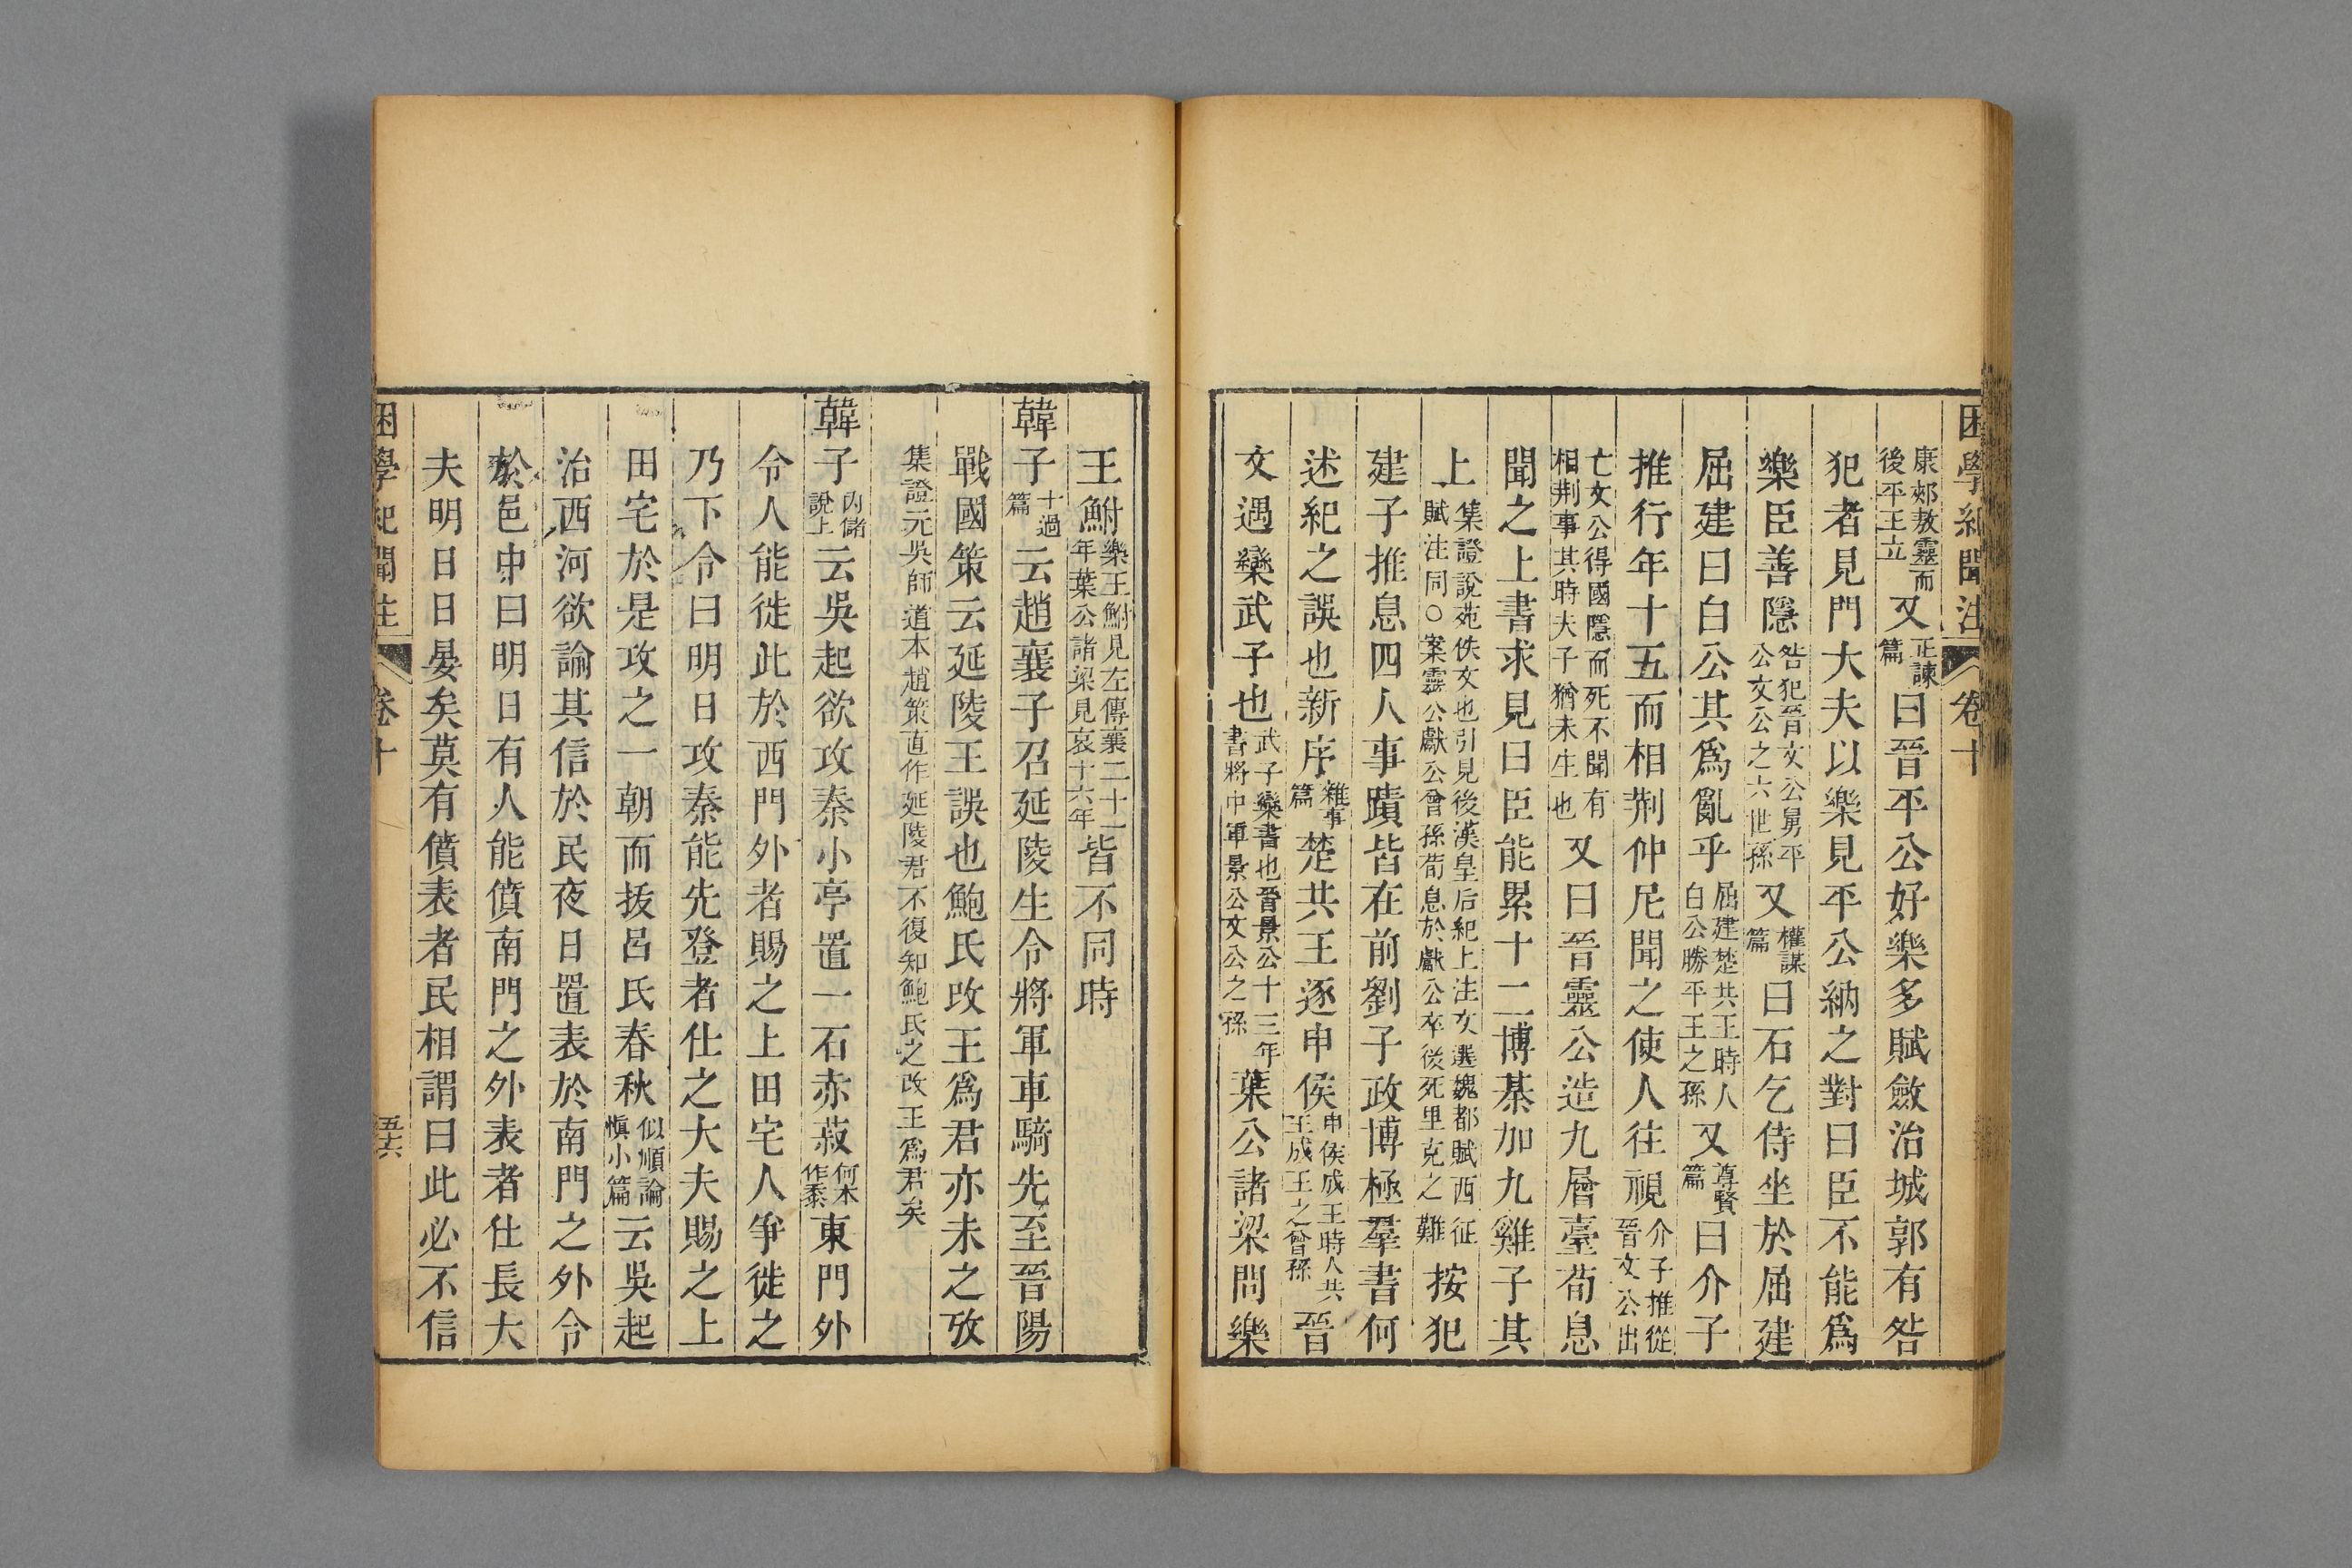 困學紀聞注 卷十
康郟敖靈而後平王立又正諫篇曰晉平公好樂多賦斂治城郭有咎
犯者見門大夫以樂見平公納之對曰臣不能爲
樂臣善隱咎犯晉文公舅平公文公之六世孫又權謀篇曰石乞侍坐於屈建
屈建曰白公其爲亂乎屈建楚共王時人白公勝平王之孫又尊賢篇曰介子
推行年十五而相荆仲尼聞之使人往視介子推從晉文公出
亡文公得國隱而死不聞有相荆事其時夫子猶未生也又曰晉靈公造九層臺荀息
聞之上書求見曰臣能累十二博棊加九雞子其
上集證說苑佚文也引見後漢皇后紀上注文選魏都賦西征賦注同○案靈公獻公曾孫荀息於獻公卒後死里克之難按犯
建子推息四人事蹟皆在前劉子政博極羣書何
述紀之誤也新序雜事篇楚共王逐申侯申侯成王時人共王成王之曾孫晉
文遇欒武子也武子欒書也晉景公十三年書將中軍景公文公之孫葉公諸梁問樂
王鮒樂王鮒見左傳襄二十一年葉公諸梁見哀十六年皆不同時
韓子十過篇云趙襄子召延陵生令將軍車騎先至晉陽
戰國策云延陵王誤也鮑氏改王爲君亦未之攷
集證元吳師道本趙策直作延陵君不復知鮑氏之改王爲君矣
韓子內儲說上云吳起欲攻秦小亭置一石赤菽何本作黍東門外
令人能徙此於西門外者賜之上田宅人爭徙之
乃下令曰明日攻秦能先登者仕之大夫賜之上
田宅於是攻之一朝而拔呂氏春秋似順論愼小篇云吳起
治西河欲諭其信於民夜日置表於南門之外令
於邑中曰明日有人能僨南門之外表者仕長大
夫明日日晏矣莫有僨表者民相謂曰此必不信
困學紀聞注 卷十 五十六